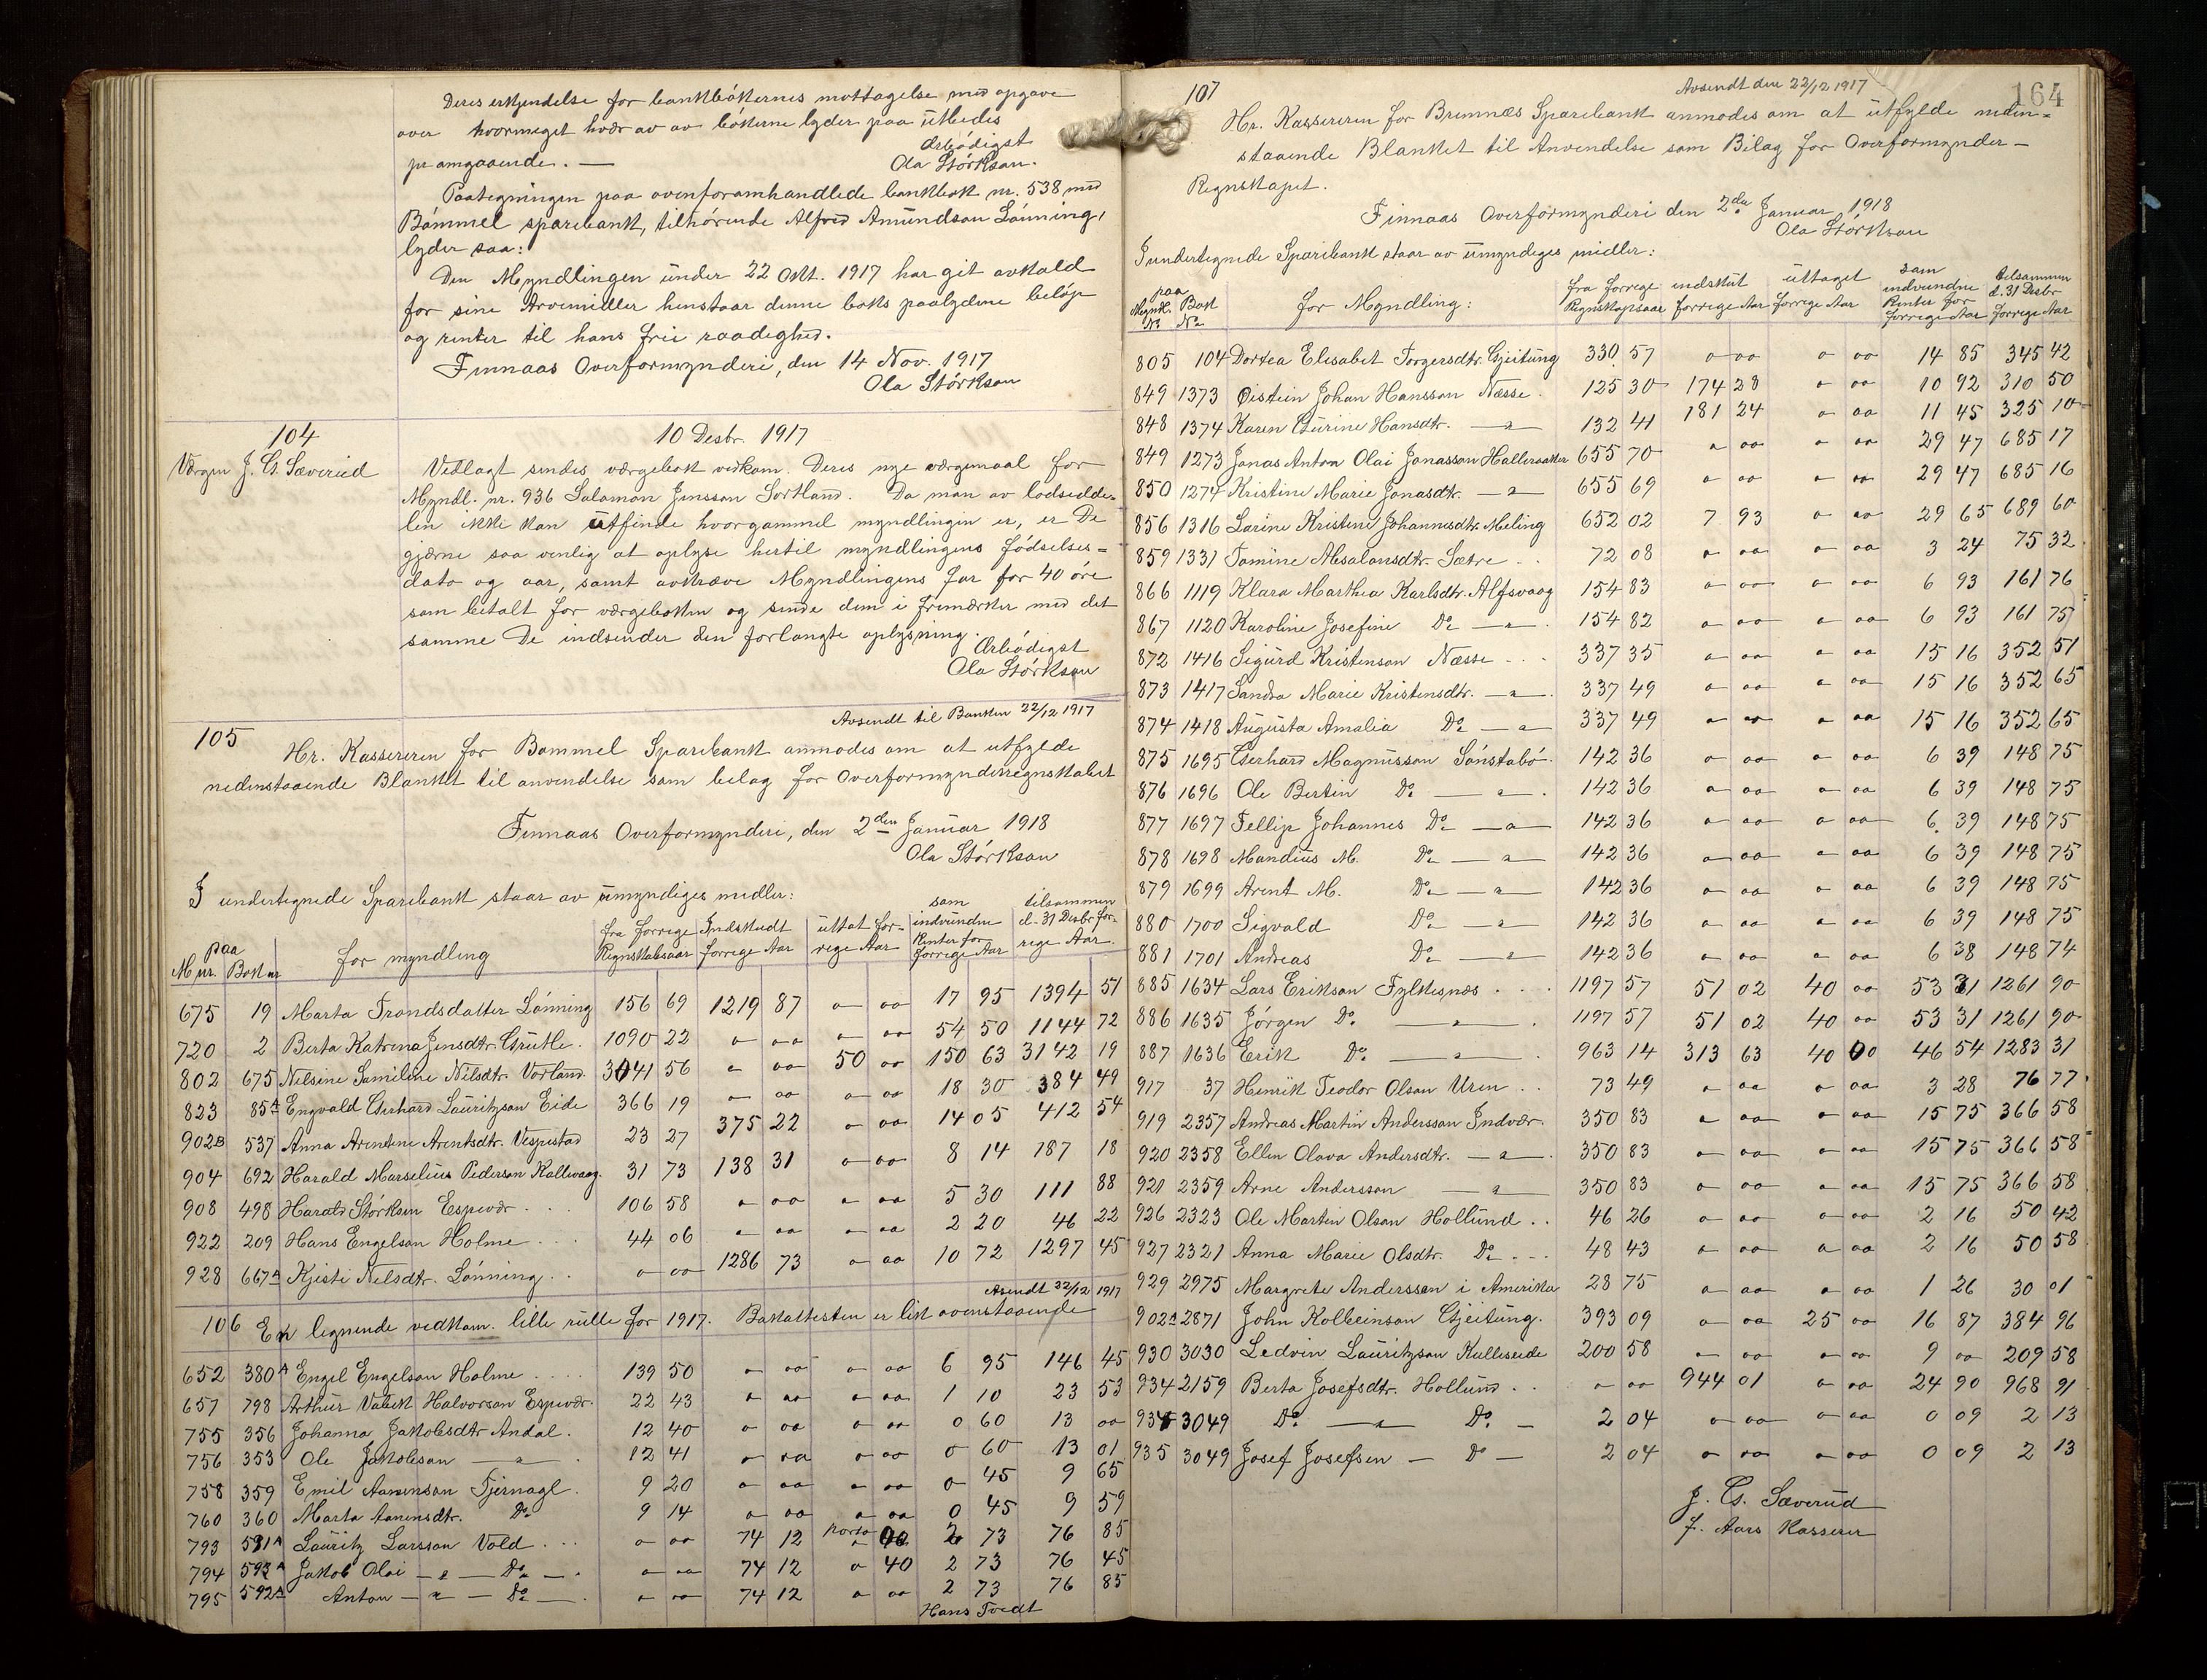 Deres erkjendelse for bankbökernes mottagelse med opgave
over hvormeget hvær av av bökerne lyder paa ütbedes
pr omgaaende. —
Ærbödigst
Ola Störkson.
Paategningen paa ovenforomhandlede bankbok nr. 538 med
Bömmel sparebank, tilhörende Alfred Amündson Lönning,
lyder saa:
Den Myndlingen ünder 22 Okt. 1917 har git avkald
for sine Arvemidler henstaar denne boks paalydene belöp
og renter til hans frie raadighed.
Finnaas Overformynderi, den 14 Nov. 1917
Ola Störkson
104
10 Desbr. 1917
Værgen J. G. Sæverüd
Vedlagt sendes værgebok vedkom. Deres nye værgemaal for
Myndl. nr. 936 Salomon Jensson Sortland. Da man av lodsedde-
len ikke kan ütfinde hvorgammel myndlingen er, er De
gjærne saa venlig at oplyse hertil myndlingens födselses=
dato og aar, samt avkræve Myndlingens far for 40 öre
som betalt for værgeboken og sende dem i frimærker med det
samme De indsender den forlangte oplysning.
Ærbödigst
Ola Störkson
Avsendt til Banken 22/12 1917
105
Hr. Kassereren for Bommel Sparebank anmodes om at utfylde
nedenstaaende Blanket til anvendelse som belag for Overformynderregnskabet
Finnaas Overformynderi, den 2den Janüar 1918
Ola Störkson
I undertegnede Sparebank staar av ümyndiges midler:
paa M nr. Bok nr for myndling fra forrige Regnskabsaar Indskudt forrige Aar üttat forrige Aar som indvündne Renter for forrige Aar tilsammen d. 31 Desbr forrige Aar.
675 19 Marta Trondsdatter Lönning 156 69 1219 87 o oo 17 95 1394 51
720 2 Berta Katrina Jensdtr. Grütle. 1090 22 o oo o oo 54 50 1144 72
802 675 Nilsine Samiline Nilsdtr. Vorland. 3041 56 o oo 50 oo 150 63 3142 19
823 85A Engvald Gerhard Laüritzson Eide 366 19 o oo o oo 18 30 384 49
902B 537 Anna Arentine Arentsdtr. Vespestad 23 27 375 22 o oo 14 05 412 54
904 692 Harald Marselius Pederson Kallevaag. 31 73 138 31 o oo 8 14 187 18
908 498 Harald Störksen Espevær . . . 106 58 o oo o oo 5 30 111 88
922 209 Hans Engelson Holme . . . 44 06 o oo o oo 2 20 46 22
928 667A Kjisti Nilsdtr. Lönning . . o oo 1286 73 o oo 10 72 1297 45
Asendt 22/12 1917
106 En lignende vedkom. lille rülle for 1917. Bakattesten er lik ovenstaaende
652 380A Engel Engelson Holme . . . . 139 50 o oo o oo 6 95 146 45
657 798 Arthür Valick Halvorson Espevær. 22 43 o oo o oo 1 10 23 53
755 356 Johanna Jakobsdtr Andal. 12 40 o oo o oo 0 60 13 oo
756 353 Ole Jakobson — " — . 12 41 o oo o oo 0 60 13 01
758 359 Emil Aanenson Tjernagl. 9 20 o oo o oo 0 45 9 65
760 360 Marta Aanensdtr. Do 9 14 o oo o oo 0 45 9 59
793 591A Laüritz Larsson Vold . . . o oo 74 12 porto o 40 2 73 76 85
794 593A Jakob Olai — " — Do — . o oo 74 12 o 40 2 73 76 45
795 592A Anton — " — Do — . o oo 74 12 o oo 2 73 76 85
Hans Tvedt
107
Avsendt den 22/12 1917
164
Hr. Kassereren for Bremnæs Sparebank anmodes om at ütfylde neden=
staaende Blanket til Anvendelse som Bilag for Overformynder—
Regnskapet.
Finnaas Overformynderi den 2den Januar 1918
Ola Störkson
I undertegnede Sparebank staar av ümyndiges midler:
paa Myndl. No Bok No for Myndling: fra forrige Regnskapsaar indsküt forrige Aar üttaget forrige Aar som indvundne Renter for forrige Aar tilsammen d. 31 Desbr forrige Aar
805 104 Dortea Elisabet Torgersdtr. Gjeitüng 330 57 o oo o oo 14 85 345 42
849 1373 Øistein Johan Hansson Næsse. 125 30 174 28 o oo 10 92 310 50
848 1374 Karen Gürine Hansdtr. — " — 132 41 181 24 o oo 11 45 325 10
849 1273 Jonas Anton Olai Jonasson Halleraaker 655 70 o oo o oo 29 47 685 17
850 1274 Kristine Marie Jonasdtr. — " — 655 69 o oo o oo 29 47 685 16
856 1316 Larine Kristine Johannesdtr. Meling 652 02 7 93 o oo 29 65 689 60
859 1331 Tomine Absalonsdtr. Sætre . . 72 08 o oo o oo 3 24 75 32
866 1119 Klara Marthea Karlsdtr. Alfsvaag 154 83 o oo o oo 6 93 161 76
867 1120 Karoline Josefine Do — " — 154 82 o oo o oo 6 93 161 75
872 1416 Sigürd Kristenson Næsse . . . 337 35 o oo o oo 15 16 352 51
873 1417 Sandra Marie Kristensdtr. — " — . 337 49 o oo o oo 15 16 352 65
874 1418 Aügüsta Amalia Do — " — 337 49 o oo o oo 15 16 352 65
875 1695 Gerhard Magnüsson Sönstabö. 142 36 o oo o oo 6 39 148 75
876 1696 Ole Bertin Do — " — . 142 36 o oo o oo 6 39 148 75
877 1697 Fellip Johannes Do — " — 142 36 o oo o oo 6. 39 148 75
878 1698 Mandius M. Do — " — 142 36 o oo o oo 6 39 148 75
879 1699 Arent M. Do — " — 142 36 o oo o oo 6 39 148 75
880 1700 Sigvald Do — " — 142 36 o oo o oo 6 39 148 75
881 1701 Andreas Do — " — 142 36 o oo o oo 6 38 148 74
885 1634 Lars Erikson Fylkesnæs . . . 1197 57 51 02 40 oo 53 31 1261 90
886 1635 Jørgen Do. — " — . 1197 57 51 02 40 oo 53 31 1261 90
887 1636 Erik Do — " — . 963 14 313 63 40 00 46 54 1283 31
917 37 Henrik Teodor Olson Uren . . 73 49 o oo o oo 3 28 76 77
919 2357 Andreas Martin Andersson Indvær. 350 83 o oo o oo 15 75 366 58
920 2358 Ellen Olava Andersdtr. — " — . 350 83 o oo o oo 15 75 366 58
921 2359 Arne Andersson — " — 350 83 o oo o oo 15 75 366 58
926 2323 Ole Martin Olson Hollünd . . 46 26 o oo o oo 2 16 50 42
927 2321 Anna Marie Olsdtr. Do . - - 48 43 o oo o oo 2 16 50 58
929 2975 Margrete Anderssen i Amerika 28 75 o oo o oo 1 26 30 01
902A 2871 John Kolbeinson Gjeitüng. 393 09 o oo 25 oo 16 87 384 96
930 3030 Ledvin Laüritzson Kulleseide 200 58 o oo o oo 9 oo 209 58
934 2159 Berta Josefsdtr. Hollünd . . o oo 944 01 o oo 24 90 968 91
934 3049 Do. — " — Do. — 2 04 o oo o oo 0 09 2 13
935 3049 Josef Josefsen — Do — 2 04 o oo o oo 0 09 2 13
J. G. Sæverüd
f. Aars Kasserer